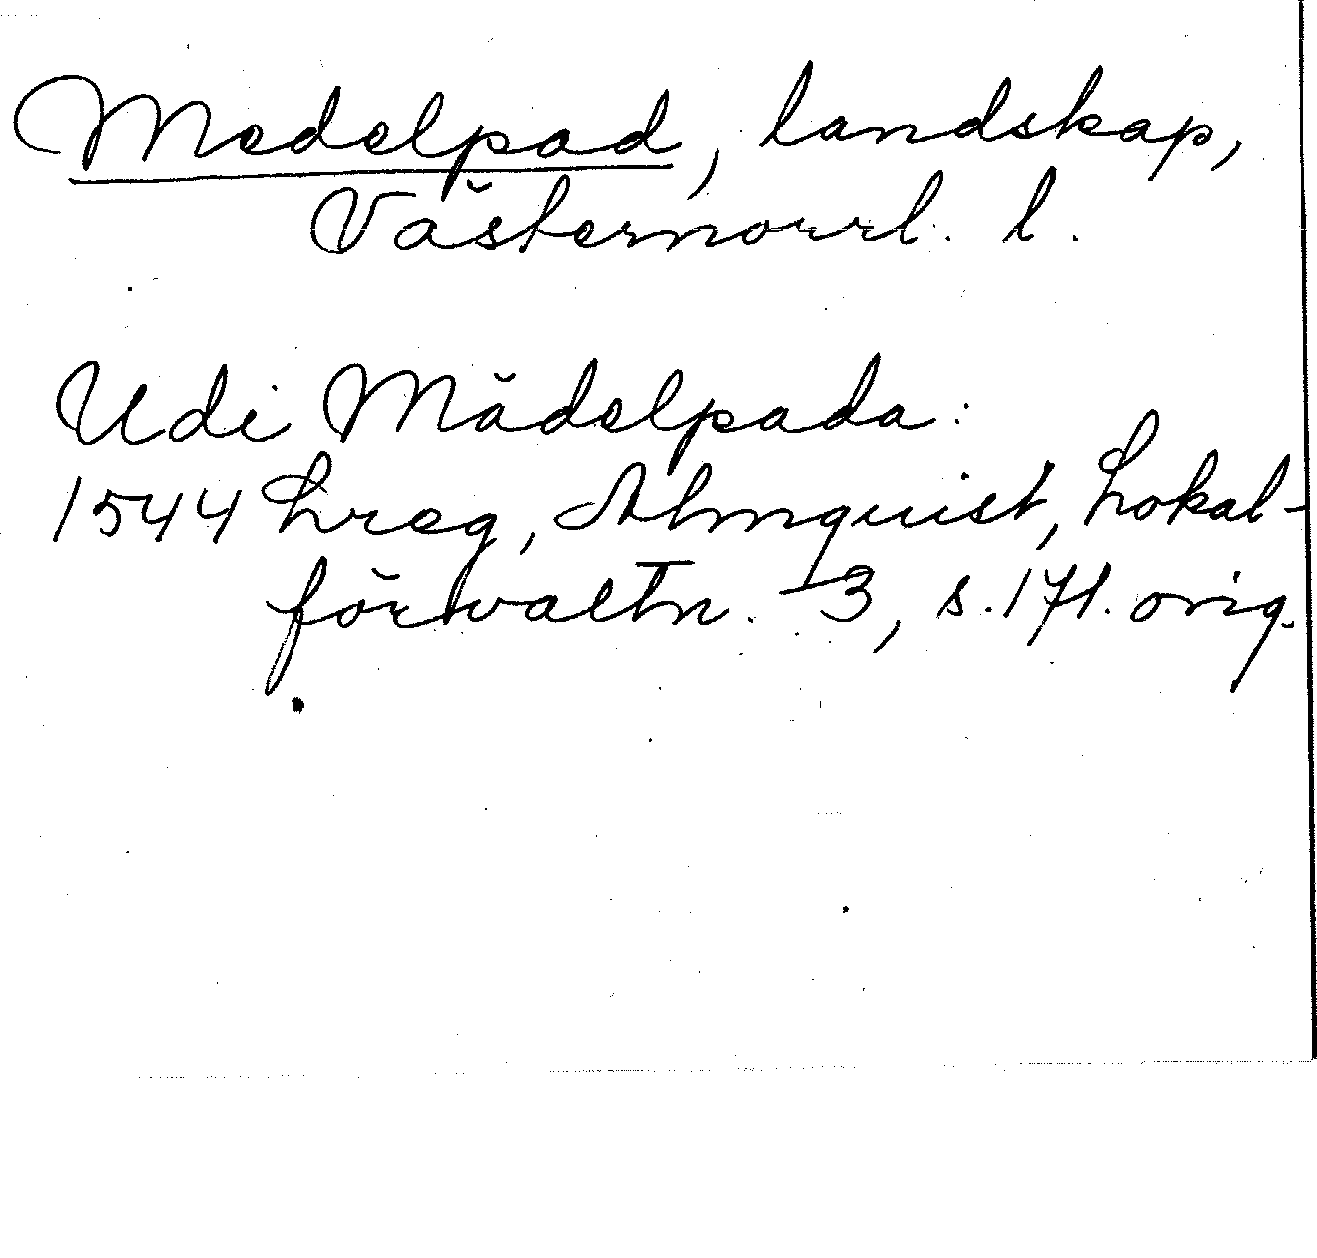 Medelpad, landskap,
Västernorrl. l.
Udi Mädelpada:
1544 Lreg, Almquist, Lokal-
förvaltn. 3, s. 171. orig.